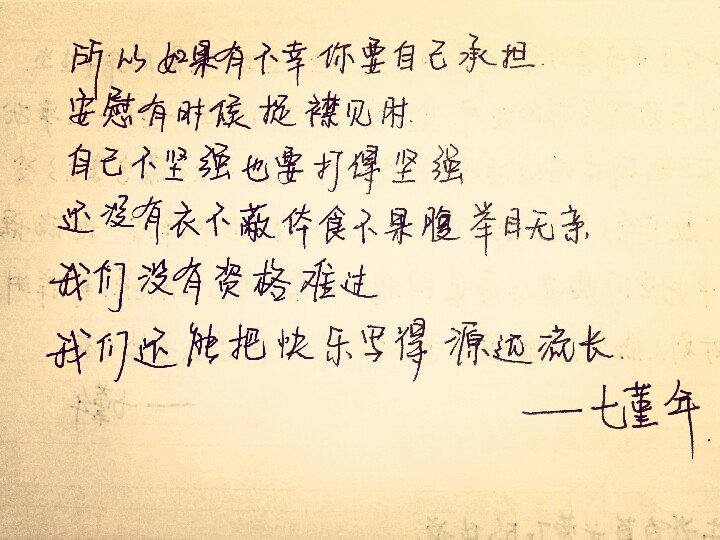 所以如果有不幸你要自己承担
安慰有时候捉襟见肘.
自己不坚强也要打得坚强
还没有衣不蔽体食不果腹举目无亲
我们没有资格难过
我们还能把快乐写得源远流长.
——七堇年